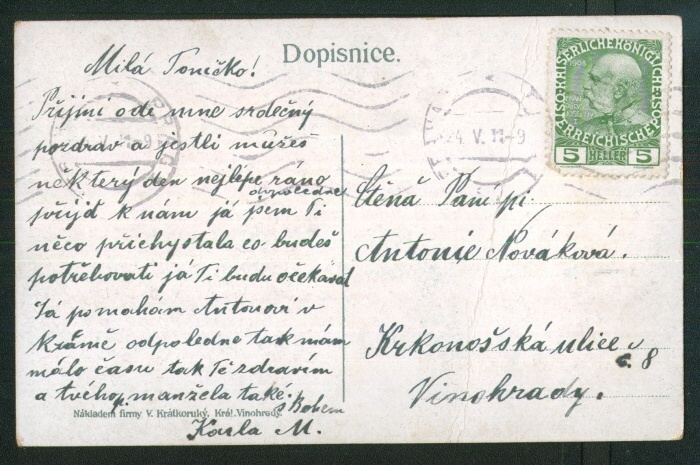 Dopisnice.
Milá Toničko!
Přijmi ode mne srdečný
pozdrav a jestli můžeš
některý den nejlépe ráno
dopoledne
přijď k nám já jsem Ti
něco přichystala co budeš
potřebovati já Ti budu očekávat
Já pomohám Antonovi v
krámě odpoledne tak mám
málo času tak Tě zdravím
a tvého p. manžela také.
s Bohem
Karla M.
Nákladem firmy V. Krátkoruký, Král. Vinohrady.
KAISERLICHE KÖNIGLICHE
ÖSTERREICHISCHE POST
1908
5 HELLER 5
V. 11-9
24. V. 11-9
Ctěná Paní pí
Antonie Nováková.
Krkonošská ulice
č. 8
Vinohrady.